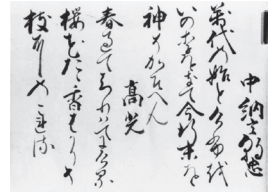 中納言朝忠
萬代の始とけふを
いのりをきて今行末は
神そかそへん
高光
春過てちりはてにける
梅花たゝ香はかりそ
枝にのこれる